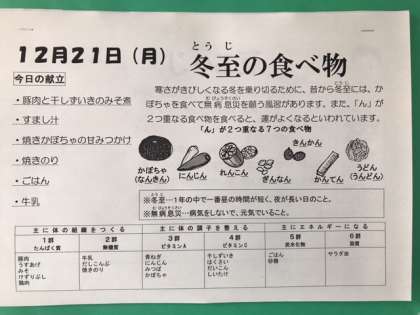 12月21日（月）
とうじ
冬至の食べ物
今日の献立
・豚肉と干しずいきのみそ煮
・すまし汁
・焼きかぼちゃの甘みつかけ
・焼きのり
・ごはん
・牛乳
寒さがきびしくなる冬を乗り切るために、昔から冬至には、か
ぼちゃを食べて無病息災を願う風習があります。また、「ん」が
2つ重なる食べ物を食べると、運がよくなるといわれています。
「ん」が2つ重なる7つの食べ物
かぼちゃ
(なんきん)
にんじん
れんこん
ぎんなん
きんかん
かんてん
うどん
(うんどん)
※冬至…1年の中で一番昼の時間が短く、夜が長い日のこと。
※無病息災…病気をしないで、元気でいること。
主に体の組織をつくる
主に体の調子を整える
主にエネルギーになる
1群
たんぱく質
2群
無機質
3群
ビタミンA
4群
ビタミンC
5群
炭水化物
6群
脂質
豚肉
うすあげ
みそ
けずりぶし
鶏肉
牛乳
だしこんぶ
焼きのり
青ねぎ
にんじん
みつば
かぼちゃ
干しずいき
はくさい
だいこん
しいたけ
ごはん
砂糖
サラダ油